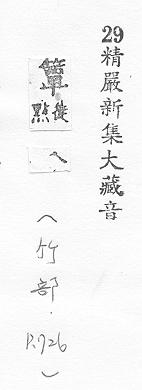 29精嚴新集大藏音
簟
徒點
(竹部.P.726)